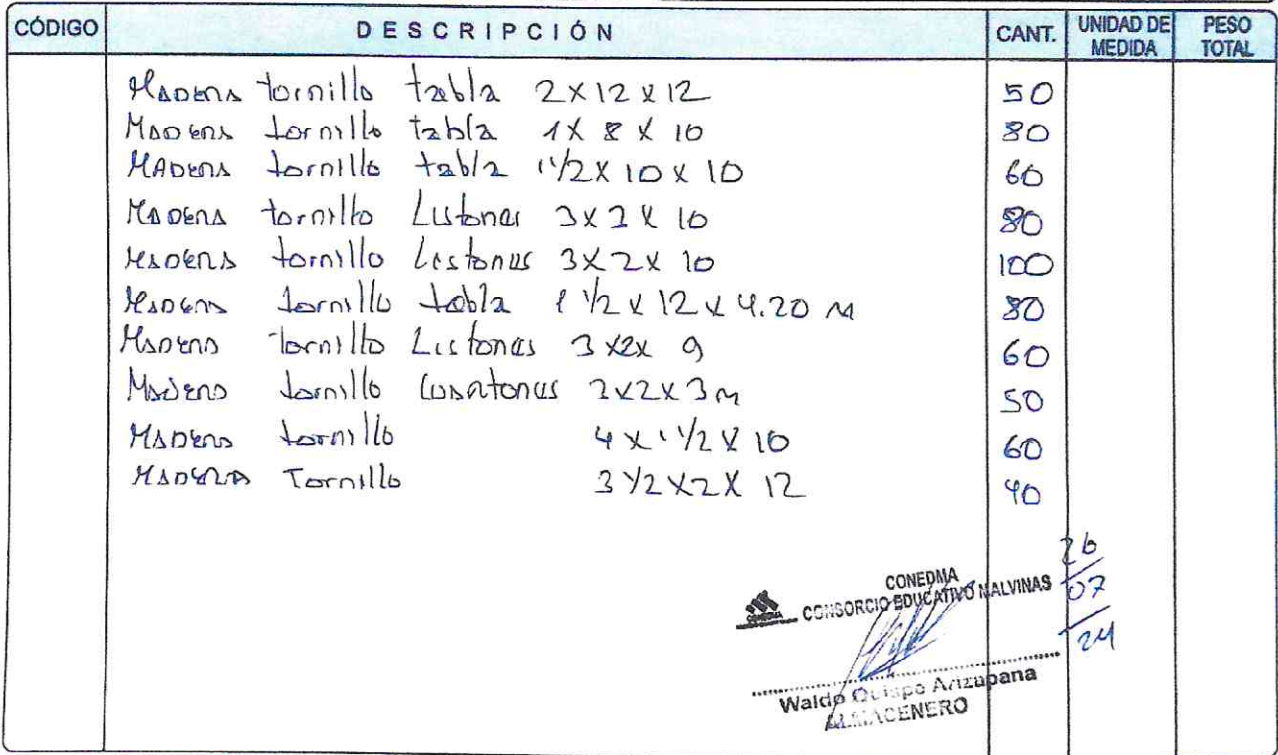 CÓDIGO DESCRIPCIÓN CANT. UNIDAD DE MEDIDA PESO TOTAL
MADERA tornillo tabla 2x12x12 50
MADERA tornillo tabla 1x8x10 80
MADERA tornillo tabla 1 1/2x10x10 60
MADERA tornillo Listones 3x2x10 80
MADERA tornillo Listones 3x2x10 100
MADERA tornillo tabla 1 1/2x12x4.20 M 80
MADERA tornillo Listones 3x2x9 60
Madera tornillo 2x2x3m 50
MADERA tornillo 4x1 1/2x10 60
MADERA Tornillo 3 1/2x2x12 40
26
07
24
CONEDMA
CONSORCIO EDUCATIVO MALVINAS
Waldo Quispe Arizapana
ALMACENERO